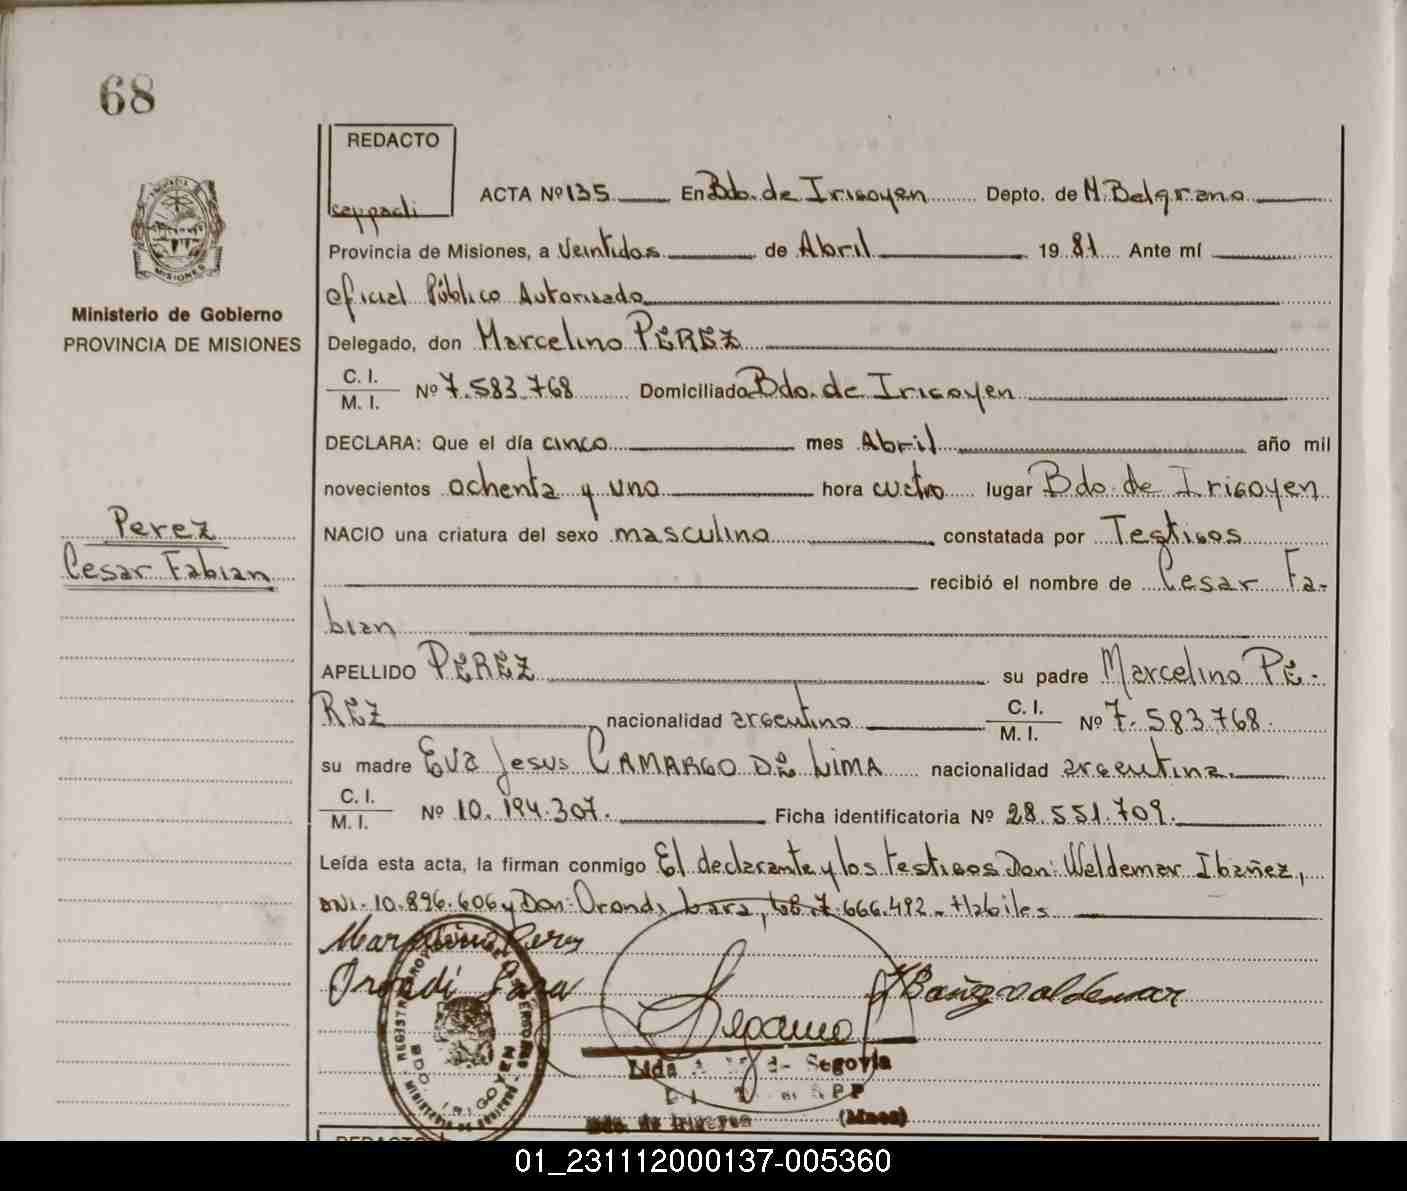 68
REDACTO
ceppadi
ACTA Nº 135 En Bdo. de Irigoyen Depto. de M. Belgrano
Provincia de Misiones, a veintidos de Abril 19 81 Ante mí
oficial Público Autorizado
Ministerio de Gobierno
PROVINCIA DE MISIONES
Delegado, don Marcelino PEREZ
C. I.
M. I. Nº 7.583.768 Domiciliado Bdo. de Irigoyen
DECLARA: Que el día cinco mes Abril año mil
novecientos ochenta y uno hora cuatro lugar Bdo. de Irigoyen
Perez
Cesar Fabian
NACIO una criatura del sexo masculino constatada por Testigos
recibió el nombre de Cesar Fa-
bian
APELLIDO PEREZ su padre Marcelino PE-
REZ nacionalidad argentino C. I.
M. I. Nº 7.583.768.
su madre Eva Jesus CAMARGO DE LIMA nacionalidad argentina.
C. I.
M. I. Nº 10.194.307. Ficha identificatoria Nº 28.551.709.
Leída esta acta, la firman conmigo El declarante y los testigos Don: Weldemar Ibañez,
DNI. 10.896.606 y Don: Orondi 7.666.492. Habiles
Marcelino Perez
Ibañez Valdemar
Lida Segovia
Bdo. de Irigoyen (Mnes)
REDACTO
01_231112000137-005360